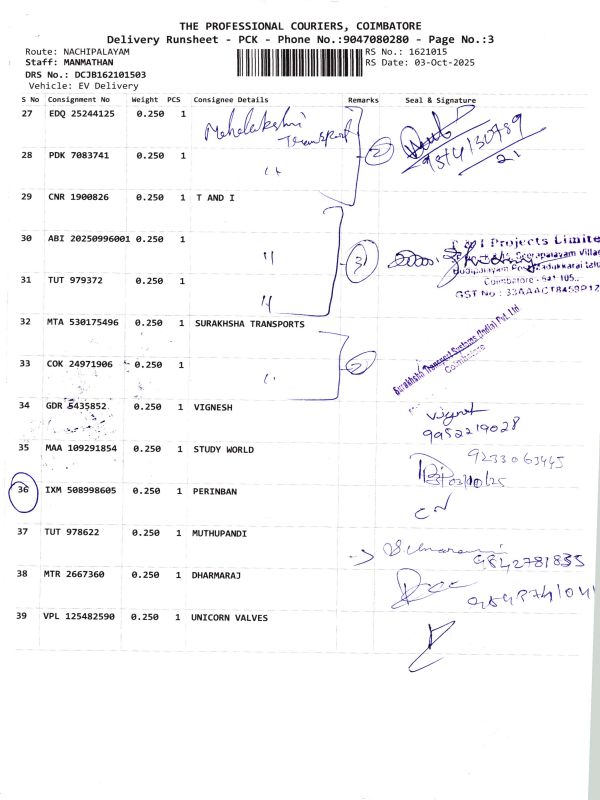 THE PROFESSIONAL COURIERS, COIMBATORE
Delivery Runsheet - PCK - Phone No.:9047080280 - Page No.:3
Route: NACHIPALAYAM RS No.: 1621015
Staff: MANMATHAN RS Date: 03-Oct-2025
DRS No.: DCJB162101503
Vehicle: EV Delivery
S No Consignment No Weight PCS Consignee Details Remarks Seal & Signature
27 EDQ 25244125 0.250 1 Mahalakshmi Transport
28 PDK 7083741 0.250 1 " 2
21
29 CNR 1900826 0.250 1 T AND I
30 ABI 20250996001 0.250 1 " 3
31 TUT 979372 0.250 1 "
T & I Projects Limite
Coimbatore - 641 105.
32 MTA 530175496 0.250 1 SURAKHSHA TRANSPORTS
33 COK 24971906 0.250 1 " 2
Surakhsha Transport Systems (India) Pvt. Ltd
Coimbatore
34 GDR 5435852 0.250 1 VIGNESH
Vignesh
9952219028
35 MAA 109291854 0.250 1 STUDY WORLD
9233063445
03/10/25
36 IXM 508998605 0.250 1 PERINBAN
CN
37 TUT 978622 0.250 1 MUTHUPANDI
9842781835
38 MTR 2667360 0.250 1 DHARMARAJ
39 VPL 125482590 0.250 1 UNICORN VALVES